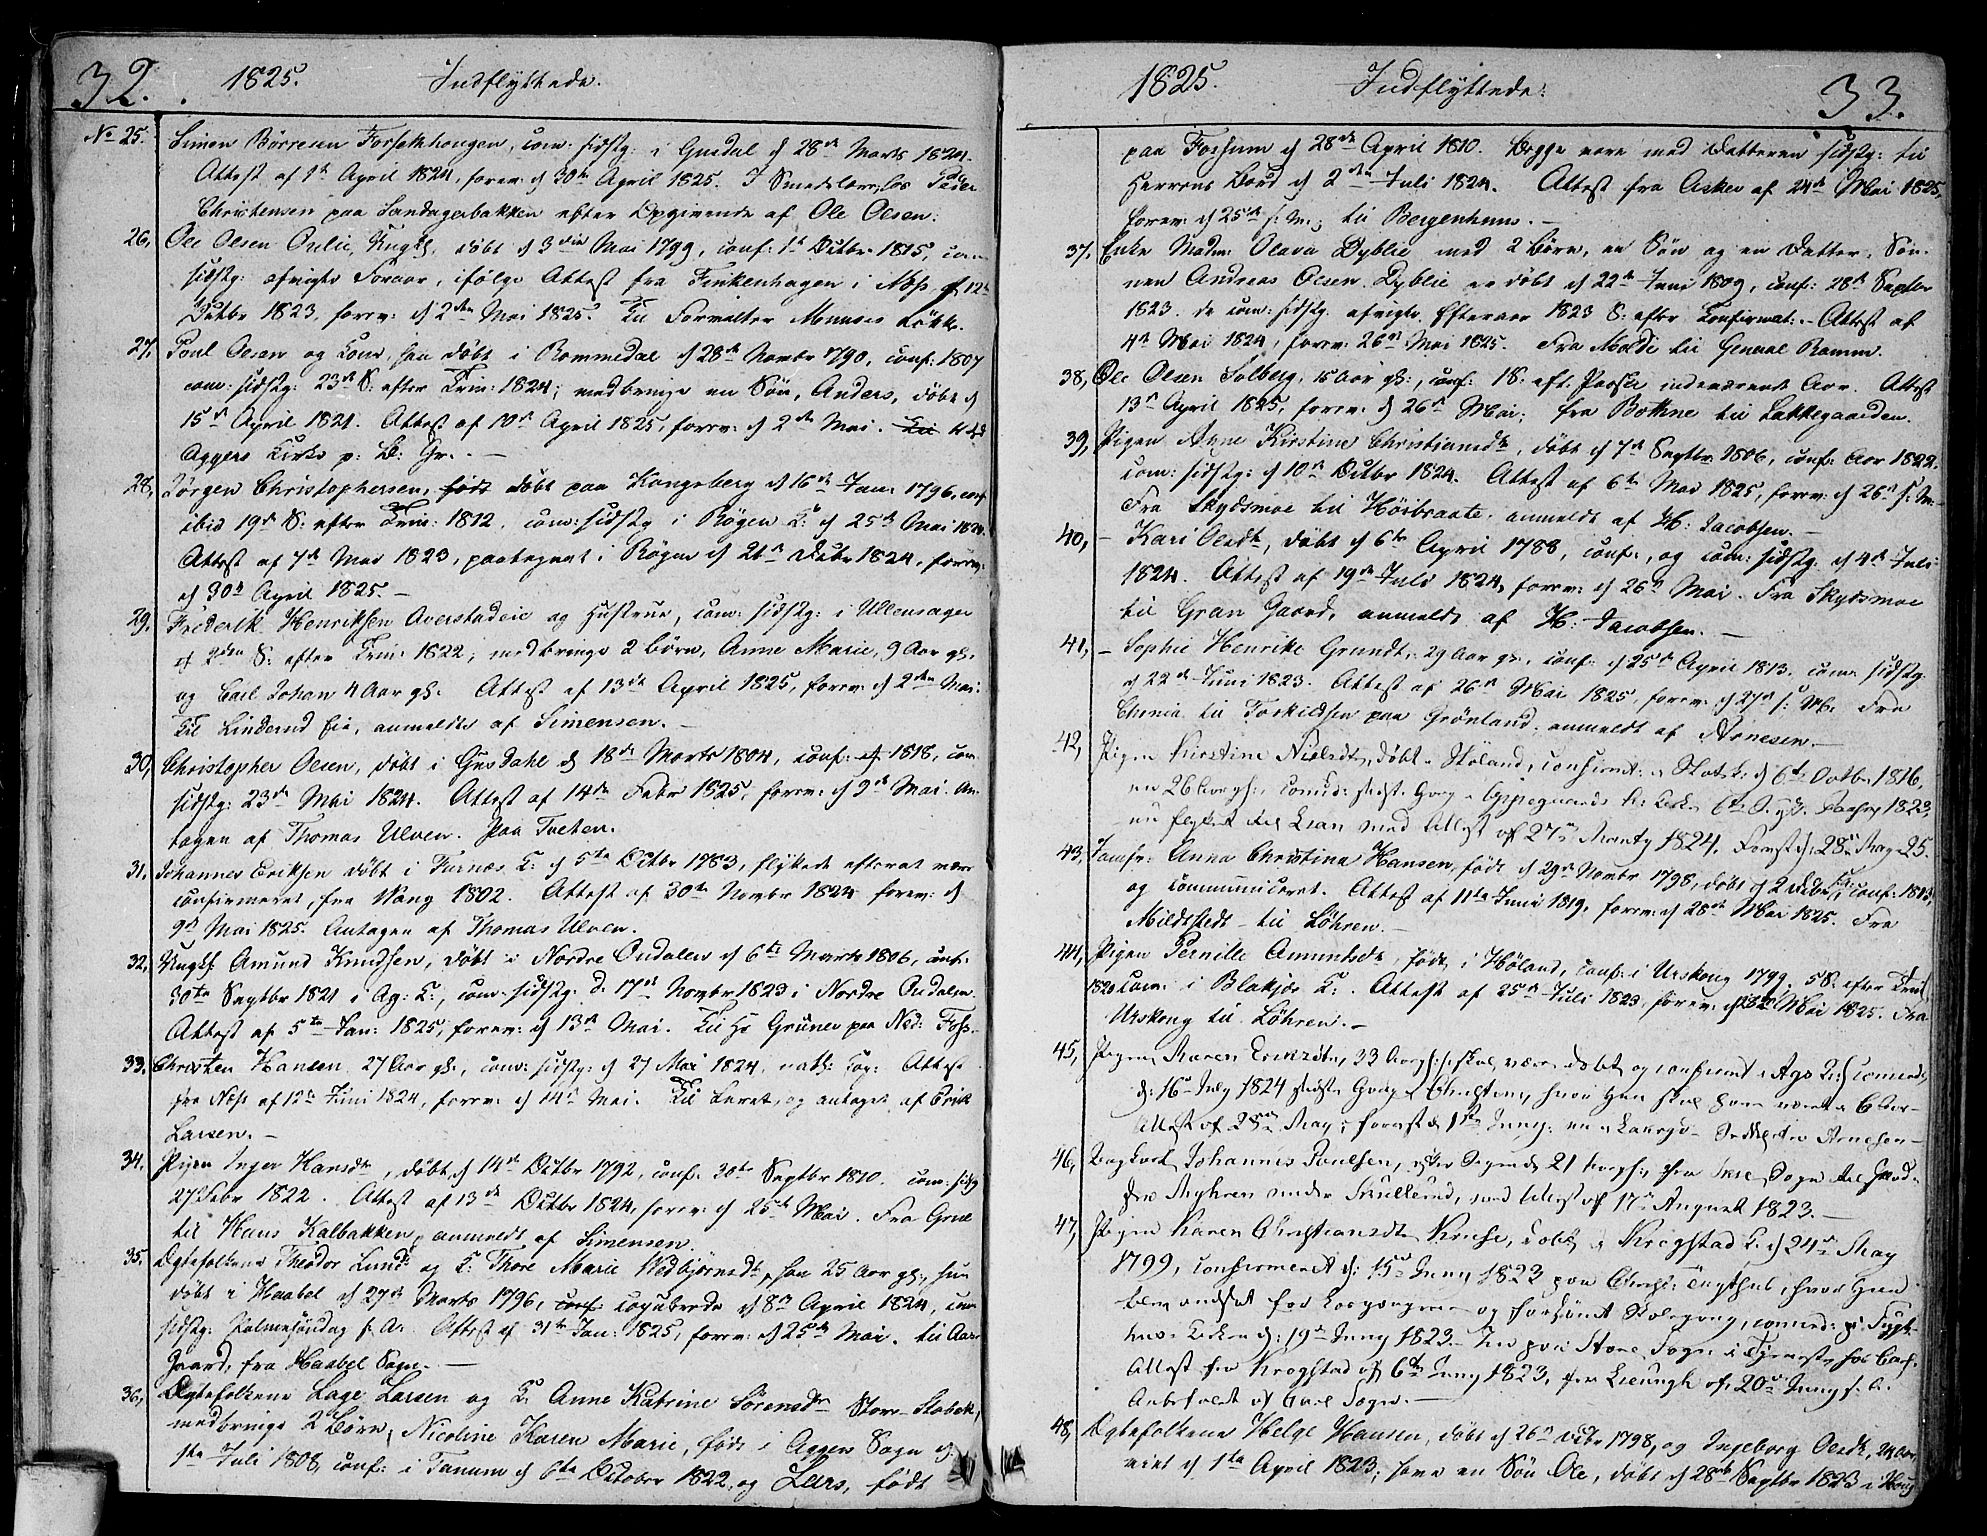 32. 1825. Indflyttede.
No 25. Simon Børresen Forsethhaugen, com: sidstg: i Gusdal d 28de Marts 1824.
Attest af 1st April 1824, forev: d 30te April 1825. I Smedelære hos Peder
Christensen paa Sandagerbakken efter Opgivende af Ole Olsen.
26, Ole Olsen Onlie, Ungk, døbt d 3die Mai 1799, conf: 1st Octbr 1815, com:
sidstg: afvigte Foraar, ifølge Attest fra Finkenhagen i Næs af 12te
Octbr 1823, forev: d 2den Mai 1825. Til Forvalter Løkke.
27, Poul Olsen og Kone, han døbt i Rommedal d 28de Novbr 1790, conf: 1807
com: sidstg: 23de S: efter Trin: 1824; medbringe en Søn, Anders, døbt d
15de April 1821. Attest af 10de April 1825, forev: d 2den Mai. Til
Aggers Kirke p: Gr.
28, Jørgen Christophersen, født døbt paa Kongsberg d 16de Jan: 1796, conf:
ibid 19de S: efter Trin: 1812, com: sidstg i Røgen K: d 25de Mai 1824.
Attest af 7de Mai 1823, paategnet i Røgen d 21de Octbr 1824, forev:
d 30te April 1825.
29, Frederik Henriksen Averstadeie og Hustrue, com: sidstg: i Ullensager
d 2den S: efter Trin: 1822, medbringe 2 Børn, Anne Marie, 9 Aar gl.
og Carl Johan 4 Aar gl. Attest af 13de April 1825, forev: d 2den Mai.
Til Linderud Eie, anmeldte af Simensen.
30, Christopher Olsen, døbt i Gusdahl d 18de Marts 1804, conf: 1818, com:
sidstg: 23de Mai 1824. Attest af 14de Febr 1825, forev: d 9de Mai. An-
tagen af Thomas Ulven. Paa Tveten.
31, Johannes Eriksen døbt i Furnæs K: d 5te Octbr 1783, flyttede efterat være
confirmeret, fra Wang 1802. Attest af 30te Novbr 1824 forev: d
9de Mai 1825. Antagen af Thomas Ulven.
32, Ungk: Amund Knudsen, døbt i Nordre Oudalen d 6te Marts 1806, conf:
30te Septbr 1821 i Ag: K:, com: sidstg: d. 17de Novbr 1823 i Nordre Oudalen.
Attest af 5te Jan: 1825, forev: d 13de Mai. Til Hr Grüner paa Ned: Foss.
33, Christen Hansen, 27 Aar gl:, com: sidstg: d 27 Mai 1824, Attest
fra Næs af 12te Juni 1824, forev: d 14de Mai. Til Leret, og antaget af Erik
Larsen.
34, Pigen Inger Hansdtr, døbt d 14de Octbr 1792, conf: 30te Septbr 1810. com: sidstg
27 Febr 1822. Attest af 13de Octbr 1824, forev: d 25de Mai. Fra Grue
til Hans Kalbakken, anmeldt af Simensen.
35, Ægtefolkene Theodor Lund og K: Thore Marie Wedbjørnsdtr, han 25 Aar gl:, hun
døbt i Haabel d 27de Marts 1796, conf: copulerede d 8de April 1824, com:
sidstg: Palmesøndag s: A: Attest af 31te Jan: 1825, forev: d 25de Mai. til
Gaard, fra Haabel Sogn.
36, Ægtefolkene Lage Larsen og K: Anne Katrine Sørensdtr Store-Stabek,
medbringe 2 Børn, Nicoline Karen Marie, født i Aggers Sogn d
1ste Juli 1808, conf: i Tanum d 6te October 1822, og Lars, født
1825. Indflyttede. 33.
paa Fossum d 28de April 1810. Begge vare med Datteren sidstg: til
Herrens Bord d 2den Juli 1824. Attest fra Asker af 24de Mai 1825,
forev: d 25de s: M:; til Bergenhuus.
37. Enke Madm: Olava Dyblie med 2 Børn, en Søn og en Datter, Søn-
nen Andreas Olsen Dyblie er døbt d 22de Juni 1809, conf: 28de Septbr
1823. de com: sidstg: afvigte Efteraar 1823 S: efter Confirmat: Attest af
4de Mai 1824, forev: 26de Mai 1825. Fra Molde til General Ramm.
38, Ole Olsen Solberg, 15 Aar gl:, conf: 1 S: eft. Paaske indeværende Aar. Attest
13de April 1825, forev: d 26de Mai; fra Bothne til Lakkegaarden.
39, Pigen Anne Kirstine Christiansdtr, døbt d 7de Septbr 1806, conf: Aar 1822,
com: sidstg: d 10de Octbr 1824. Attest af 6te Mai 1825, forev: d 26de s: M:
Fra Skydsmoe til Høibraate, anmeldt af H: Jacobsen.
40, - Kari Olsdtr, døbt d 6te April 1788, conf:, og com: sidstg: d 4de Juli
1824. Attest af 19de Juli 1824, forev: d 26de Mai. Fra Skydsmoe
til Gran Gaard, anmeldt af H: Jacobsen.
41, - Sophie Henrike Grundt, 29 Aar gl:, conf: d 25de April 1813, com: sidstg
d 22de Juni 1823. Attest af 26de Mai 1825, forev: d 27de s: M. Fra
Chonia til Torkildsen paa Grønland, anmeldt af Arnesen.
42, Pigen Kirstine Nielsdtr, døbt i Høland, confirmt: d 6te Octbr 1816,
en 26 Aar gl:, sidste Gang i Oppegaards Kirke 1823,
nu flyttet til Lian med Attest af 27de Marty 1824. Forevist d: 28de May 25.
43, Jomfr: Anna Christina Hansen, født d 29de Novbr 1798, døbt d 2 Octbr, conf: 1813,
og communiceret. Attest af 11te Juni 1819, forev: d 28de Mai 1825. Fra
Mildstedt til Løhren.
44, Pigen Pernille Amundsdtr, født i Høland, conf: i Urskoug 1799. 5 S: efter Trin:
1820 Com: i Blakjær K: Attest af 25de Juli 1823, forev: d Mai 1825. Fra
Urskoug til Løhren.
45, Pigen Maren Eriksdtr, 33 Aar gl: skal være døbt og confirmt i Ags K:
d: 16de July 1824 sidste Gang i Christiania, hvor hun skal have været 6 Aar
Attest af 28de May, forevist d 1ste Juny: Arnesen
46, Johannes Poulsen, 21 Aar gl: fra Sogn til
fra Myhren under Skullerud, med Attest af 17de August 1823.
47, Pigen Karen Christiansdtr Kruse, døbt i Krogstad K: d 24de May
1799, confirmeret d: 15de Juny 1823 paa Christ: Tugthus, hvor hun
blev indsat for Løsgjængerie og
Kirken d: 19de Juny 1823.
Attest fra Krogstad af 6te Juny 1823, fra Lieungh af 20de Juny s. A.
48, Ægtefolkene Helge Hansen, døbt d 26de Octbr 1798, og Ingeborg Olsdtr, 24 Aar,
viet d 1ste April 1823, have en Søn Ole, døbt d 28de Septbr 1823 i Houg